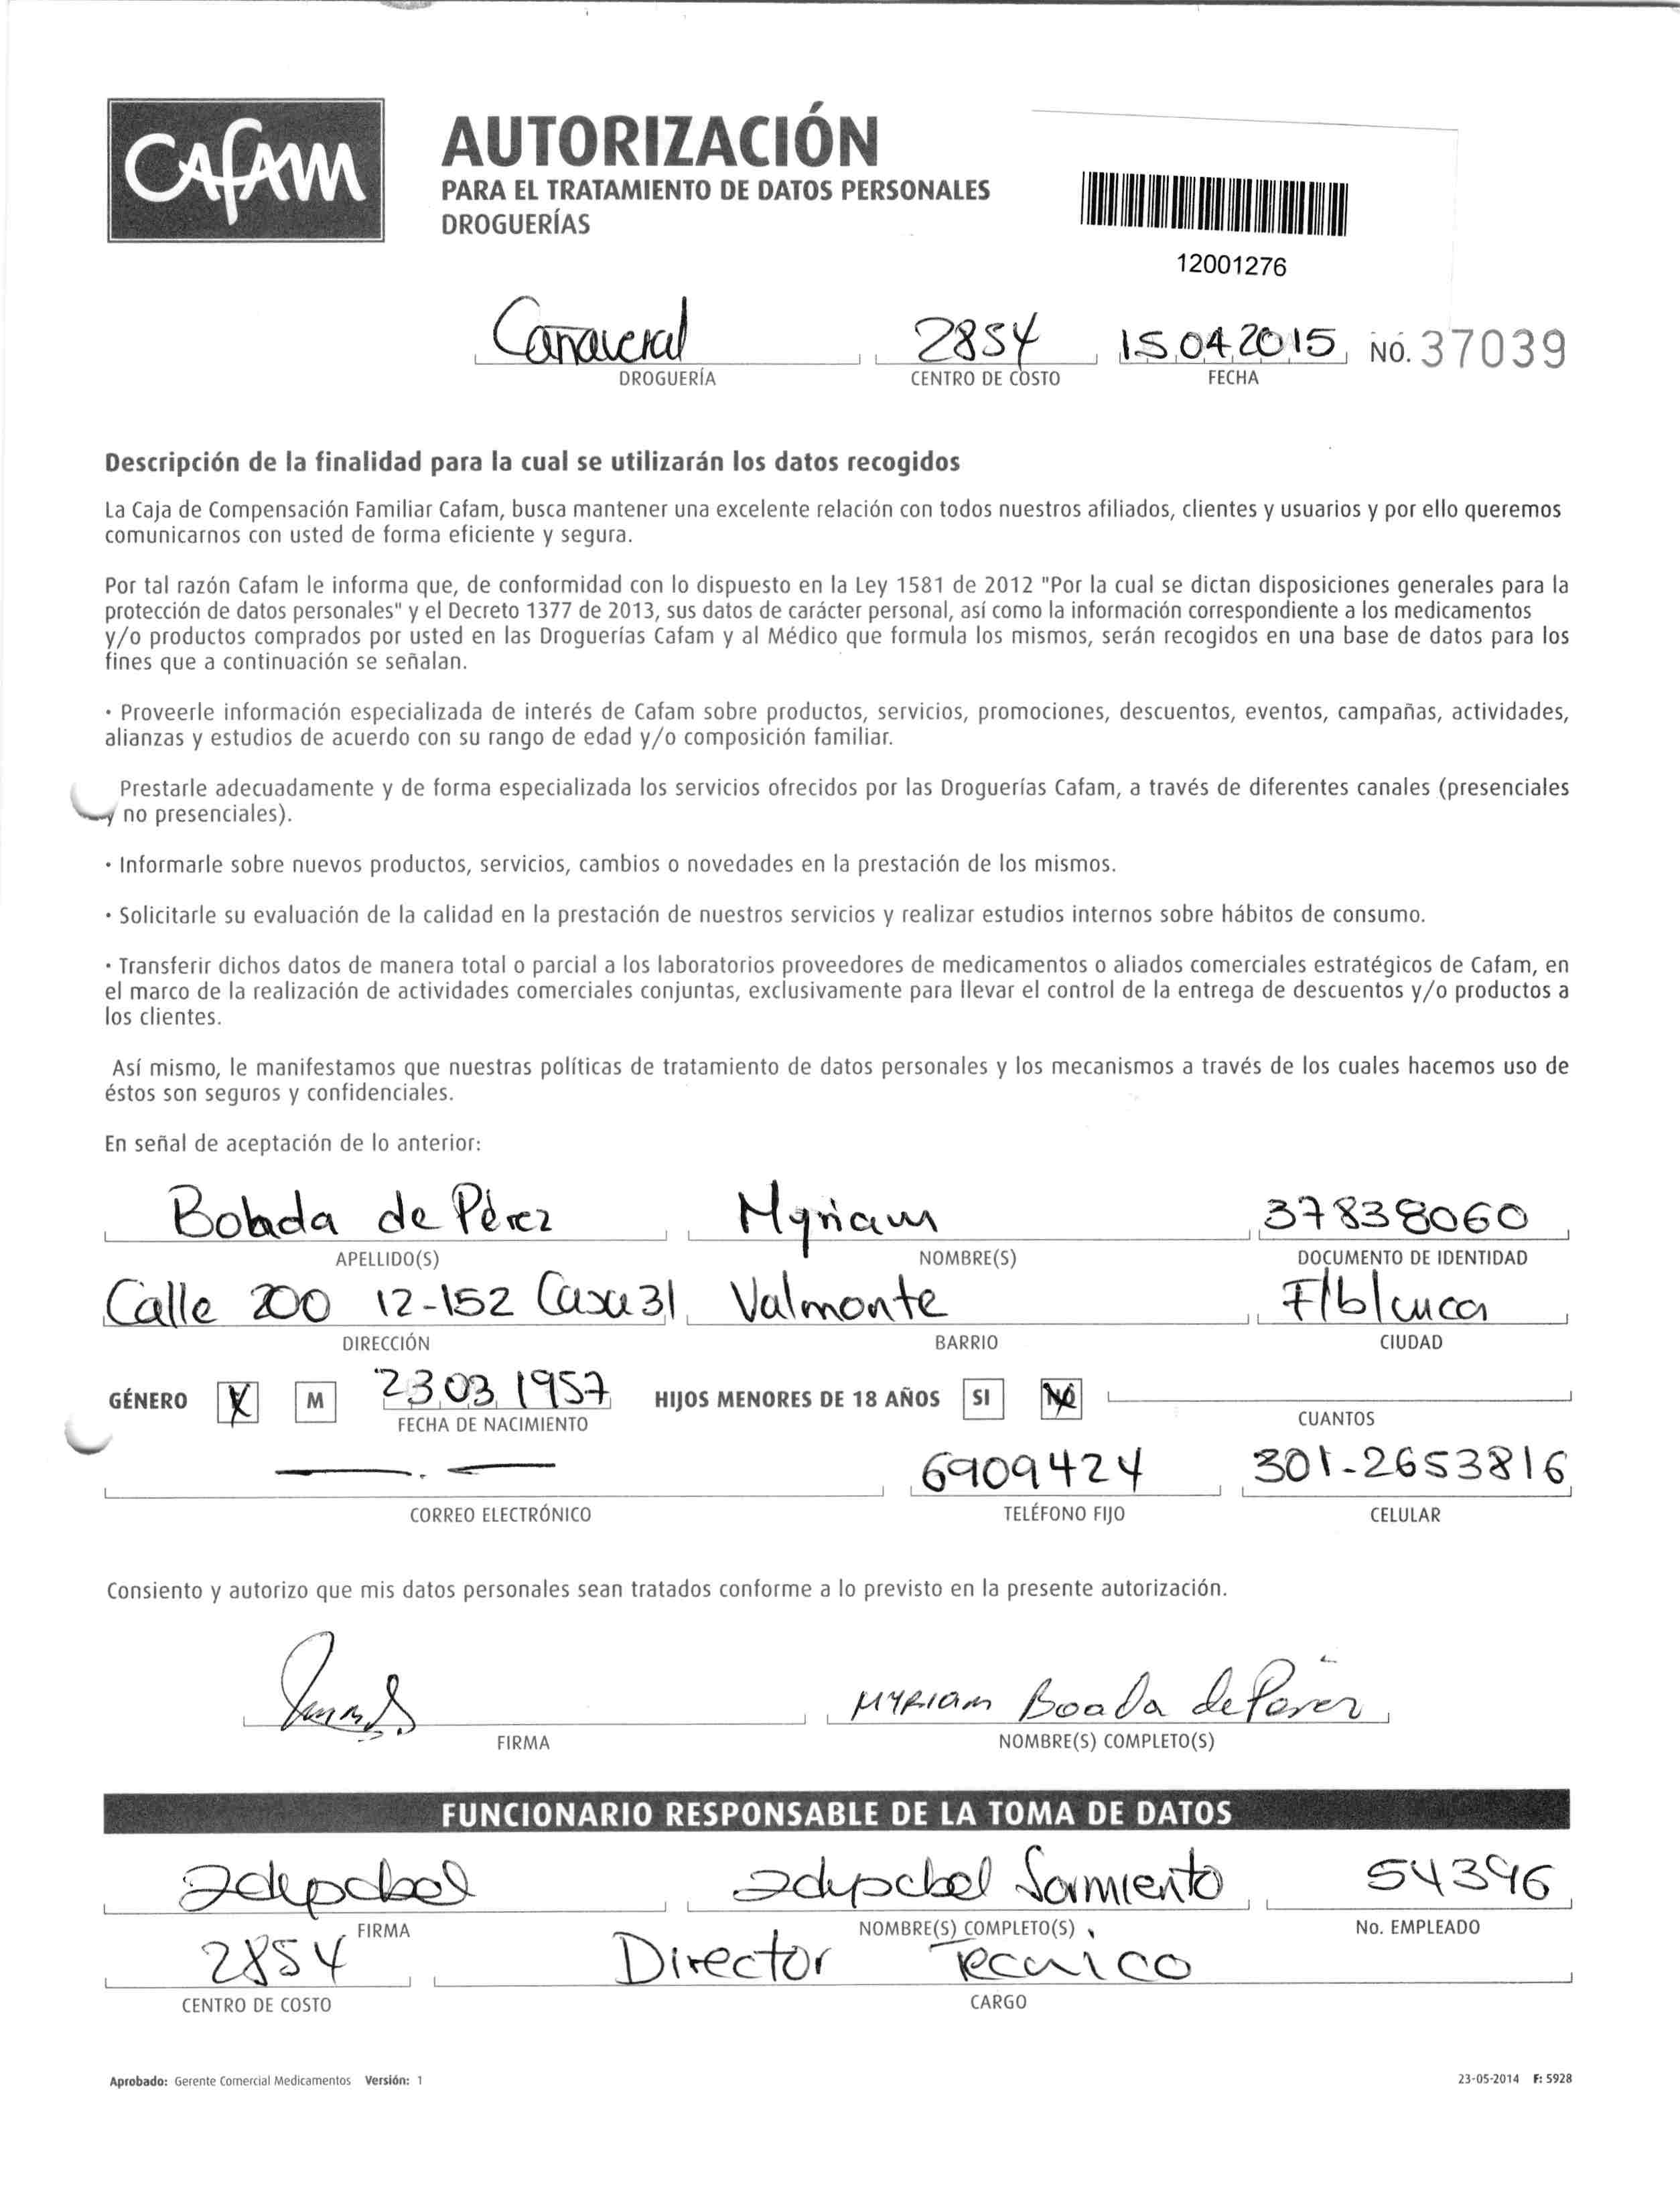 CAFAM
AUTORIZACIÓN
PARA EL TRATAMIENTO DE DATOS PERSONALES
DROGUERÍAS
12001276
Cañaveral 2854 15.04.2015 NO. 37039
DROGUERÍA CENTRO DE COSTO FECHA
Descripción de la finalidad para la cual se utilizarán los datos recogidos
La Caja de Compensación Familiar Cafam, busca mantener una excelente relación con todos nuestros afiliados, clientes y usuarios y por ello queremos
comunicarnos con usted de forma eficiente y segura.
Por tal razón Cafam le informa que, de conformidad con lo dispuesto en la Ley 1581 de 2012 "Por la cual se dictan disposiciones generales para la
protección de datos personales" y el Decreto 1377 de 2013, sus datos de carácter personal, así como la información correspondiente a los medicamentos
y/o productos comprados por usted en las Droguerías Cafam y al Médico que formula los mismos, serán recogidos en una base de datos para los
fines que a continuación se señalan.
· Proveerle información especializada de interés de Cafam sobre productos, servicios, promociones, descuentos, eventos, campañas, actividades,
alianzas y estudios de acuerdo con su rango de edad y/o composición familiar.
Prestarle adecuadamente y de forma especializada los servicios ofrecidos por las Droguerías Cafam, a través de diferentes canales (presenciales
y no presenciales).
· Informarle sobre nuevos productos, servicios, cambios o novedades en la prestación de los mismos.
· Solicitarle su evaluación de la calidad en la prestación de nuestros servicios y realizar estudios internos sobre hábitos de consumo.
· Transferir dichos datos de manera total o parcial a los laboratorios proveedores de medicamentos o aliados comerciales estratégicos de Cafam, en
el marco de la realización de actividades comerciales conjuntas, exclusivamente para llevar el control de la entrega de descuentos y/o productos a
los clientes.
Así mismo, le manifestamos que nuestras políticas de tratamiento de datos personales y los mecanismos a través de los cuales hacemos uso de
éstos son seguros y confidenciales.
En señal de aceptación de lo anterior:
de Pérez Myriam 37838060
APELLIDO(S) NOMBRE(S) DOCUMENTO DE IDENTIDAD
Calle 200 12-152 Casa 31 Valmonte F/blanca
DIRECCIÓN BARRIO CIUDAD
GÉNERO X M 23.03.1957 HIJOS MENORES DE 18 AÑOS SI NO
FECHA DE NACIMIENTO CUANTOS
6909424 301-2653816
CORREO ELECTRÓNICO TELÉFONO FIJO CELULAR
Consiento y autorizo que mis datos personales sean tratados conforme a lo previsto en la presente autorización.
Myriam Boada de Pérez
FIRMA NOMBRE(S) COMPLETO(S)
FUNCIONARIO RESPONSABLE DE LA TOMA DE DATOS
Sarmiento 54396
FIRMA NOMBRE(S) COMPLETO(S) No. EMPLEADO
2854 Director Tecnico
CENTRO DE COSTO CARGO
Aprobado: Gerente Comercial Medicamentos Versión: 1 23-05-2014 F: 5928